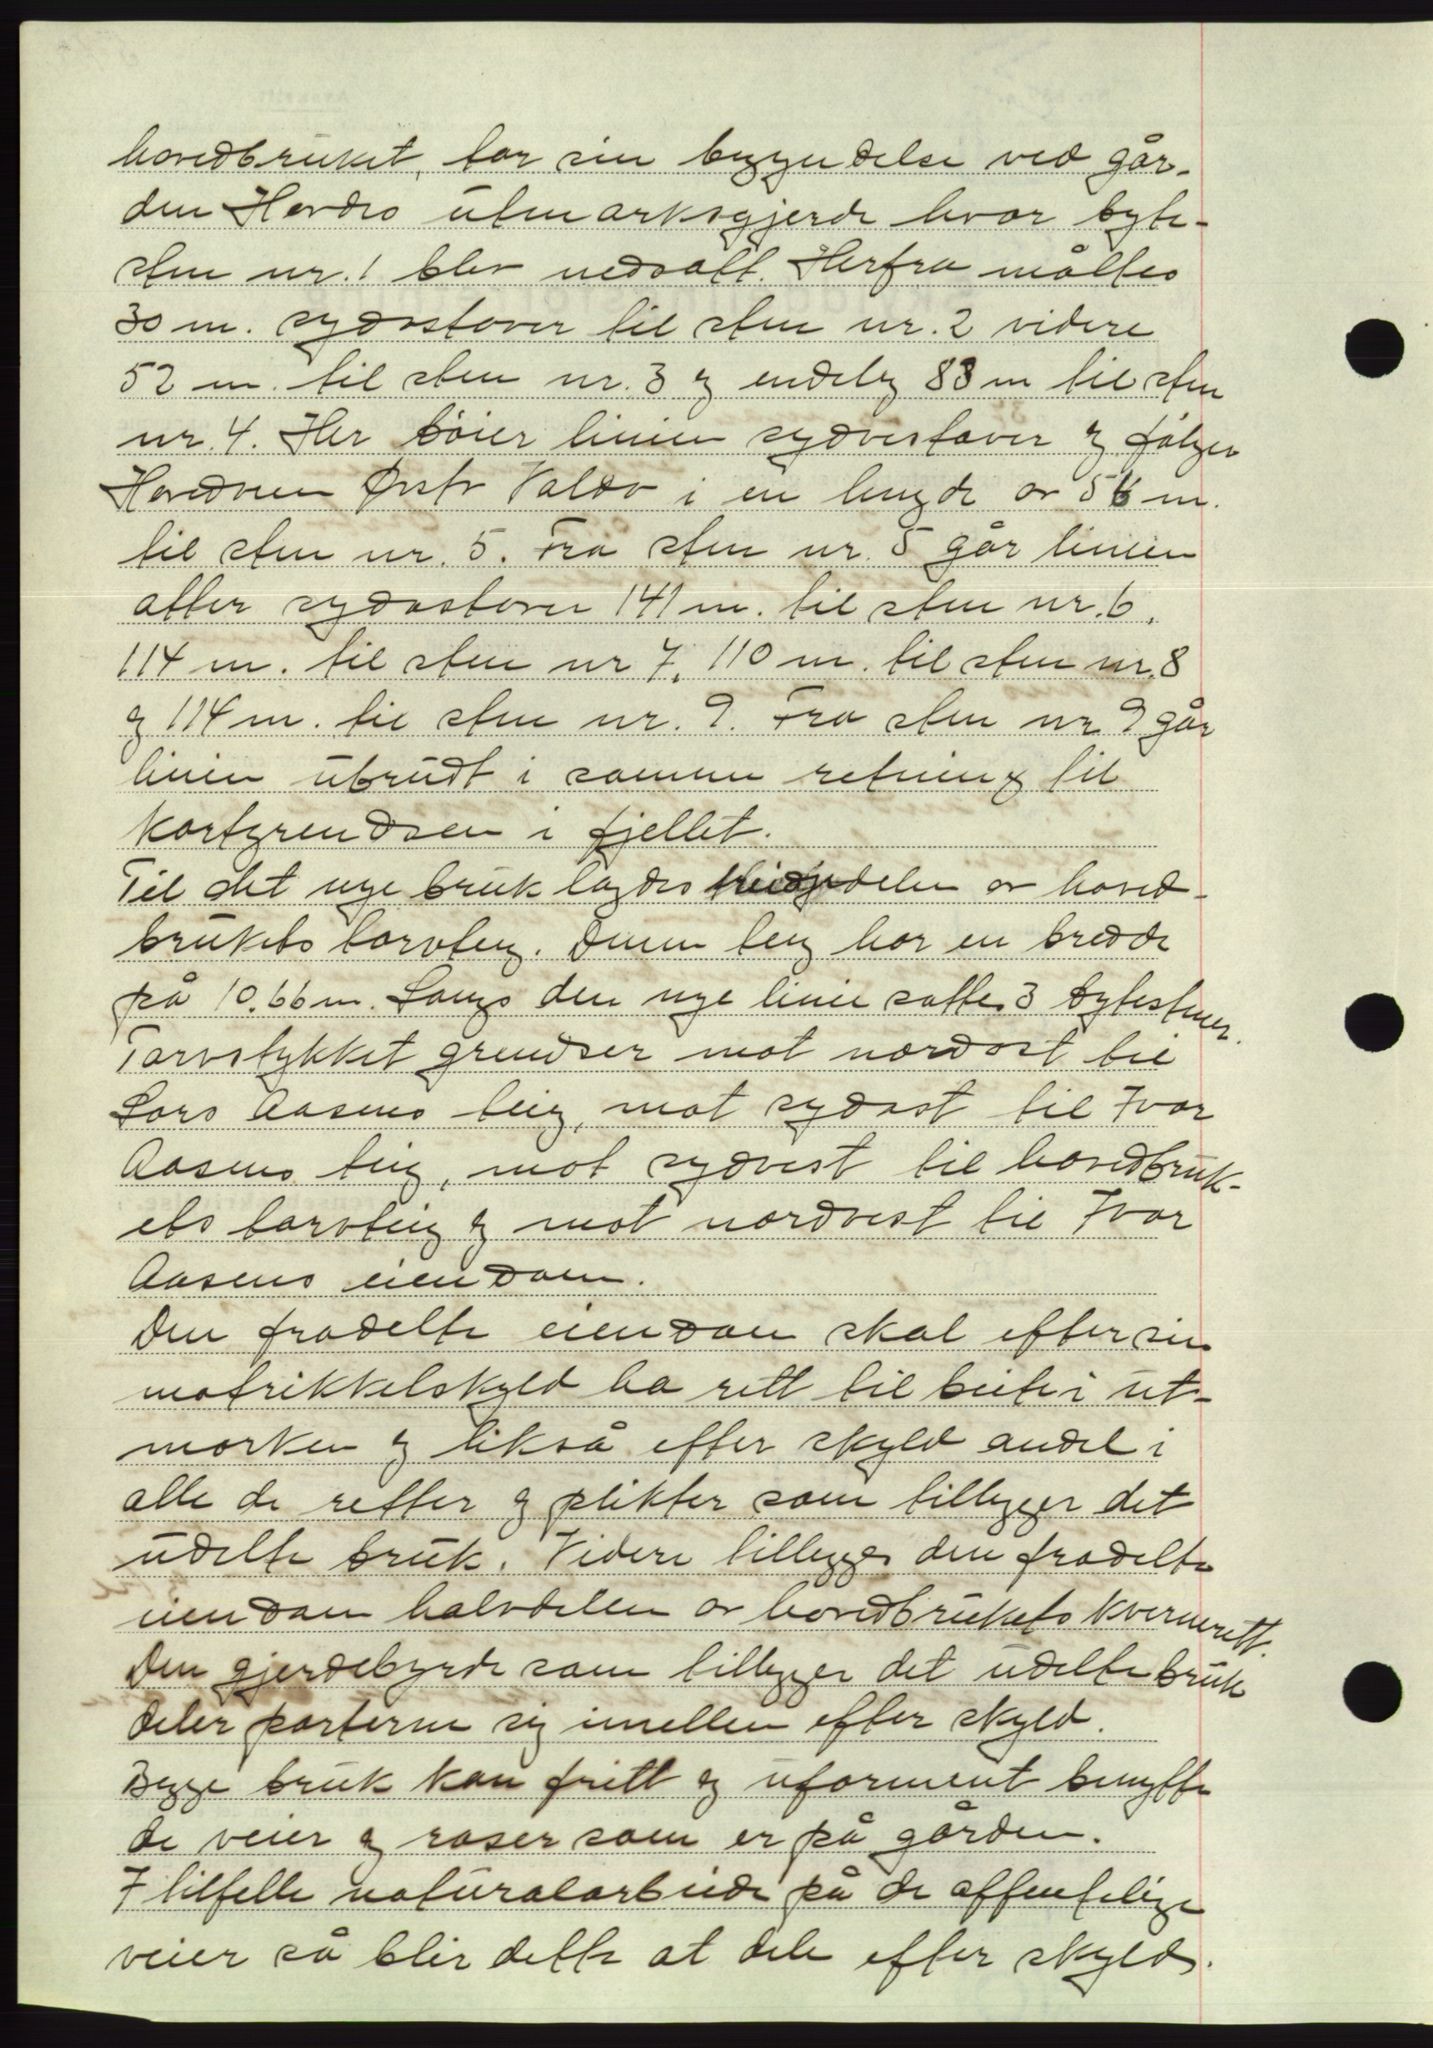 hovedbruket, tar sin begyndelse ved går-
den Hovdes utmarksgjerde hvor byte-
sten nr. 1 blev nedsatt. Herfra måltes
30 m. sydostover til sten nr. 2 videre
52 m. til sten nr. 3 og endelig 83 m til sten
nr. 4. Her bøier linien sydvestover og følger
Hovedveien Ørsta Volda i en lengde av 56 m.
til sten nr. 5. Fra sten nr. 5 går linien
atter sydostover 141 m. til sten nr. 6,
114 m. til sten nr 7, 110 m. til sten nr. 8
og 114 m. til sten nr. 9. Fra sten nr 9 går
linien ubrudt i samme retning til
kortgrendsen i fjellet.
Til det nye bruk lagdes delen av hoved-
brukets torvteig. Denne teig har en bredde
på 10.66 m. Langs den nye linie sattes 3 bytestener.
Torvstykket grendser mot nordost til
Lars Aasens teig, mot sydost til Ivar
Aasens teig, mot sydvest til hovedbruk-
ets torvteig og mot nordvest til Ivar
Aasens eiendom.
Den fradelte eiendom skal efter sin
matrikkelskyld ha rett til beite i ut-
marken og likså efter skyld andel i
alle de retter og plikter som tilligger det
udelte bruk. Videre tillegges den fradelte
eiendom halvdelen av hovedbrukets kvernrett.
Den gjerdebyrde som tilligger det udelte bruk
deler parterne sig imellem efter skyld.
Begge bruk kan fritt og uforment benytte
de veier og raser som er på gården.
I tilfelle naturalarbeide på de offentelige
veier så blir dette at dele efter skyld.